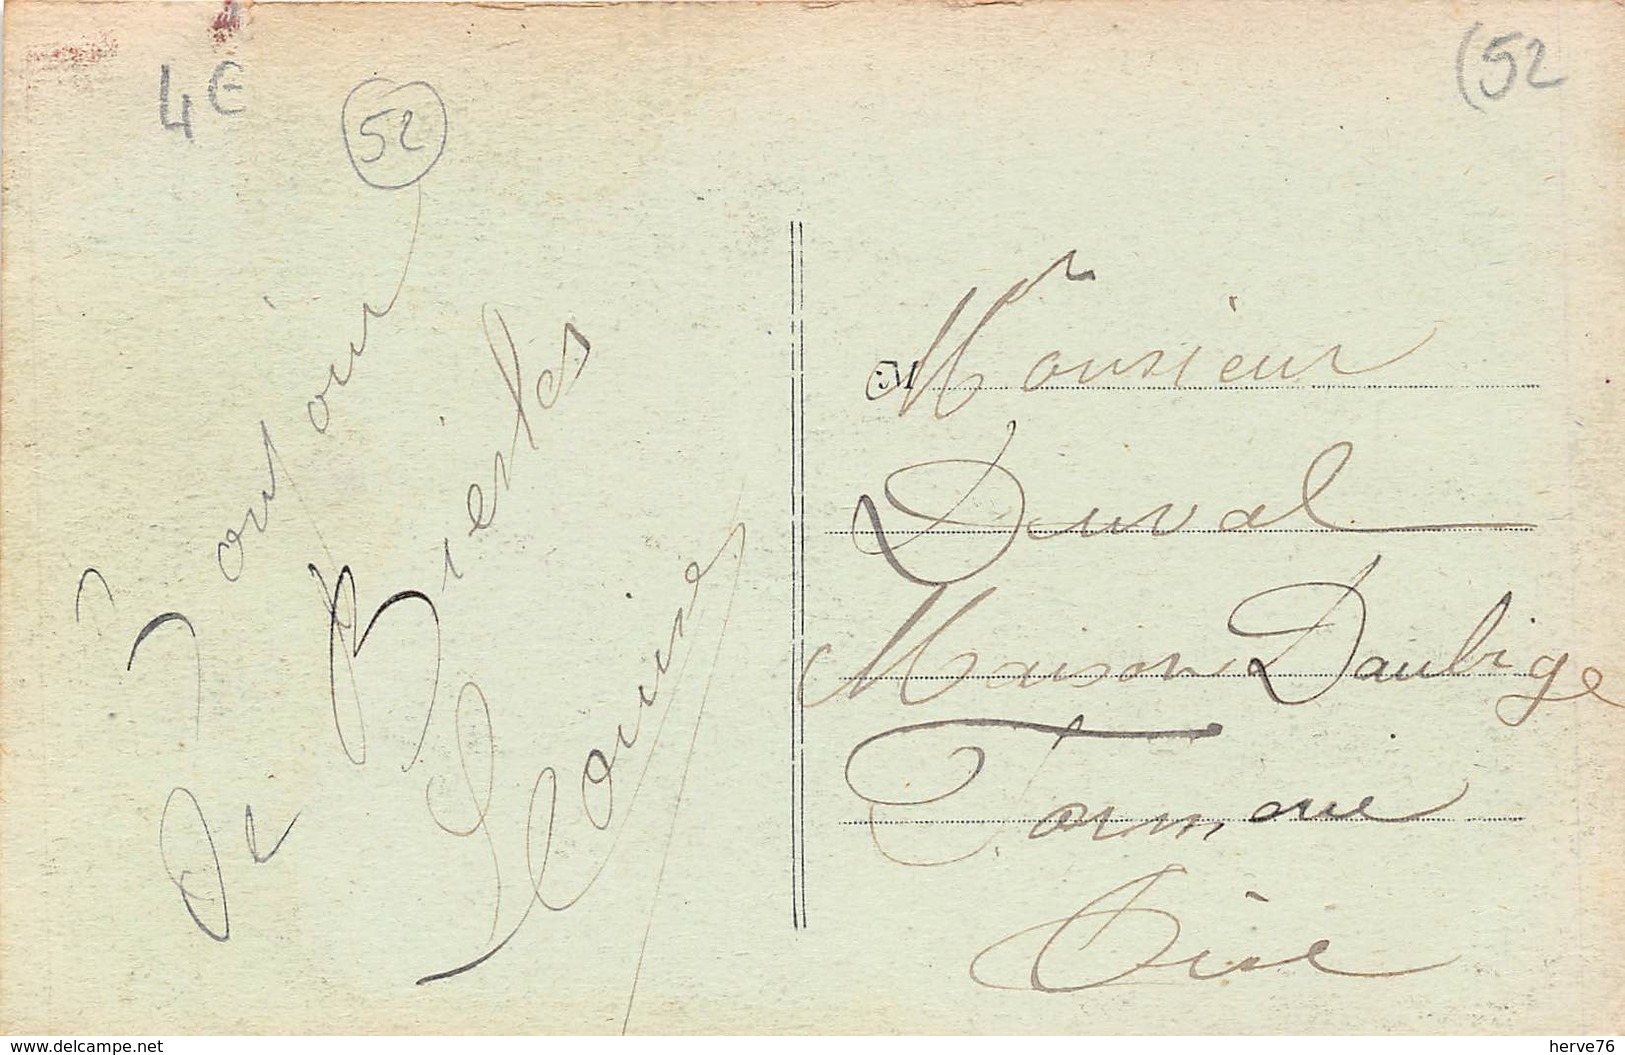 4€
52
(52
Bonjour
De Biesles
Louise
M
Monsieur
Duval
Maison Daubige
Formerie
Oise
www.delcampe.net
herve76